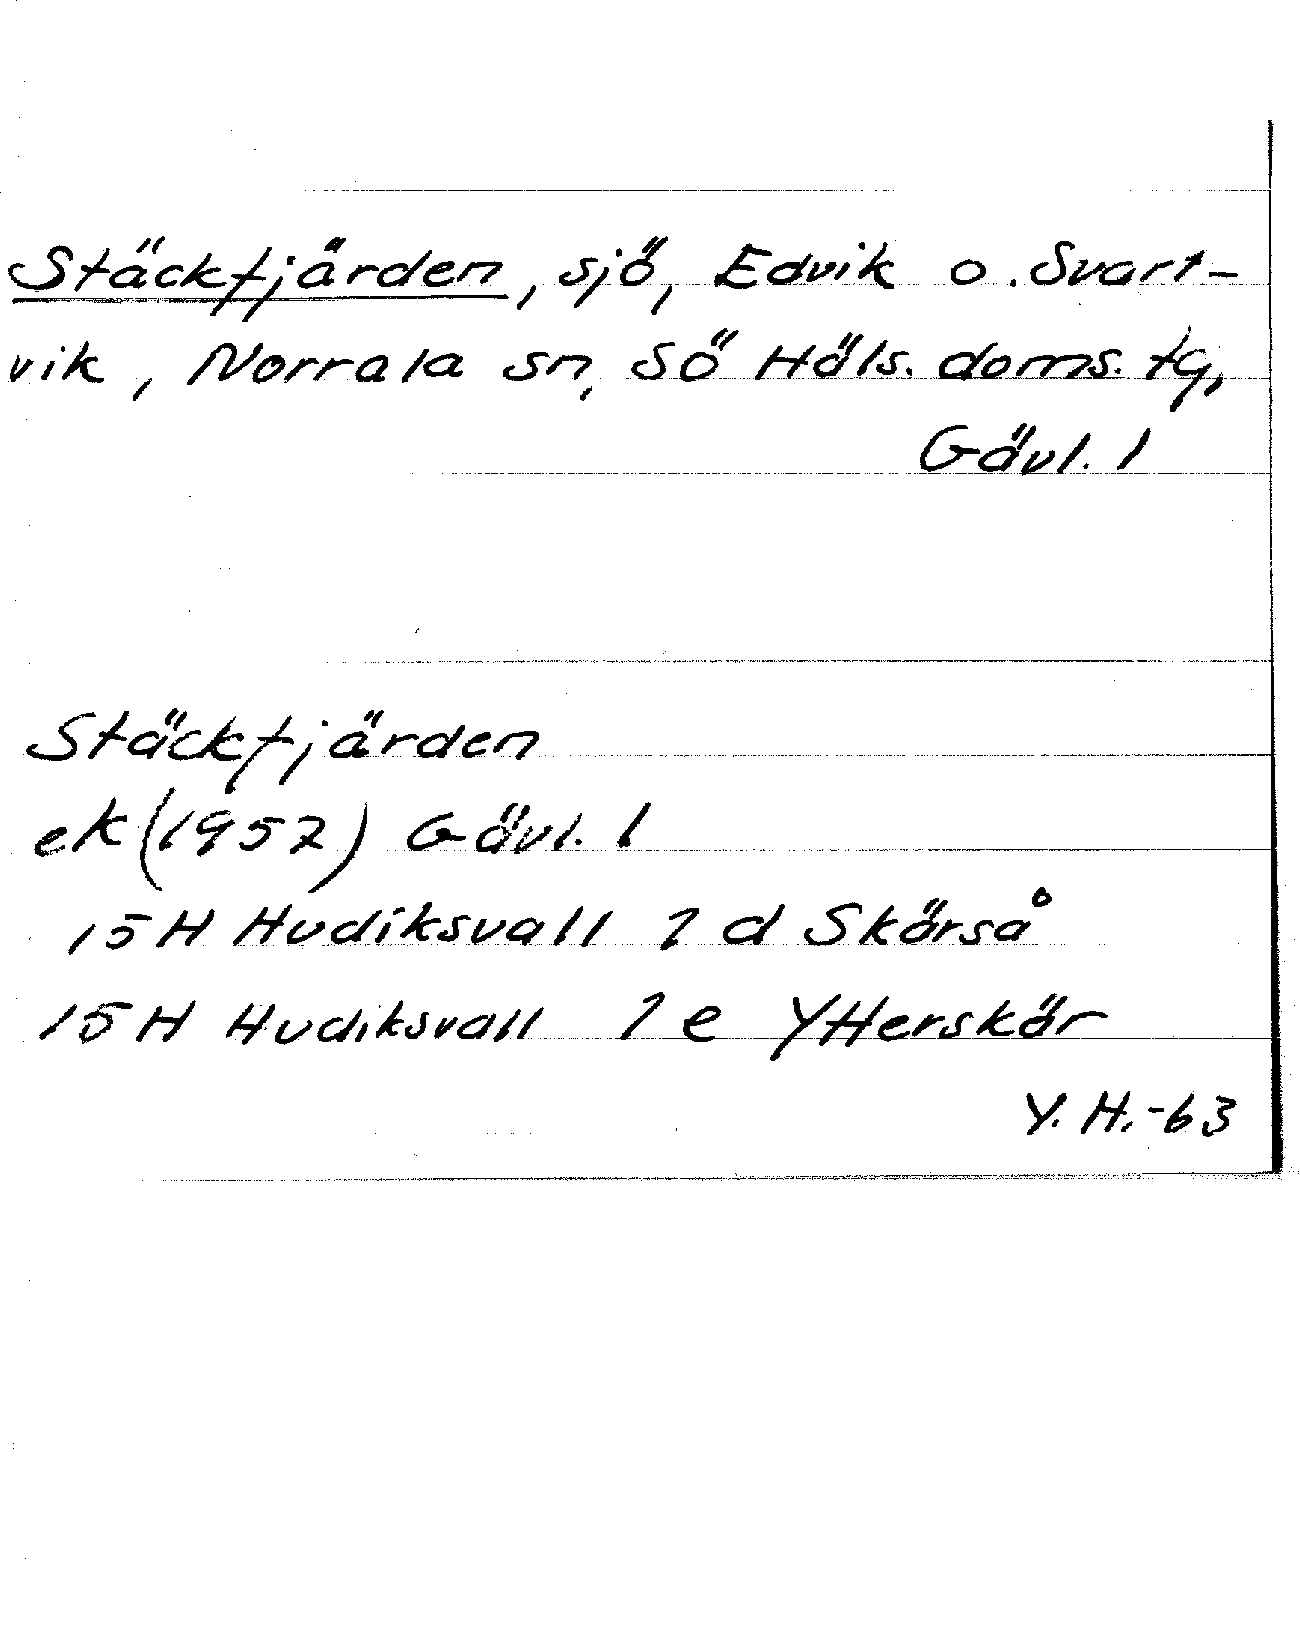 Stäckfjärden, sjö, Edvik o. Svart-
vik, Norrala sn, Sö Häls. doms. tg,
Gävl. l
Stäckfjärden
ek (1957) Gävl. l
15H Hudiksvall 1 d Skärså
15H Hudiksvall 1 e Ytterskär
Y. H. -63